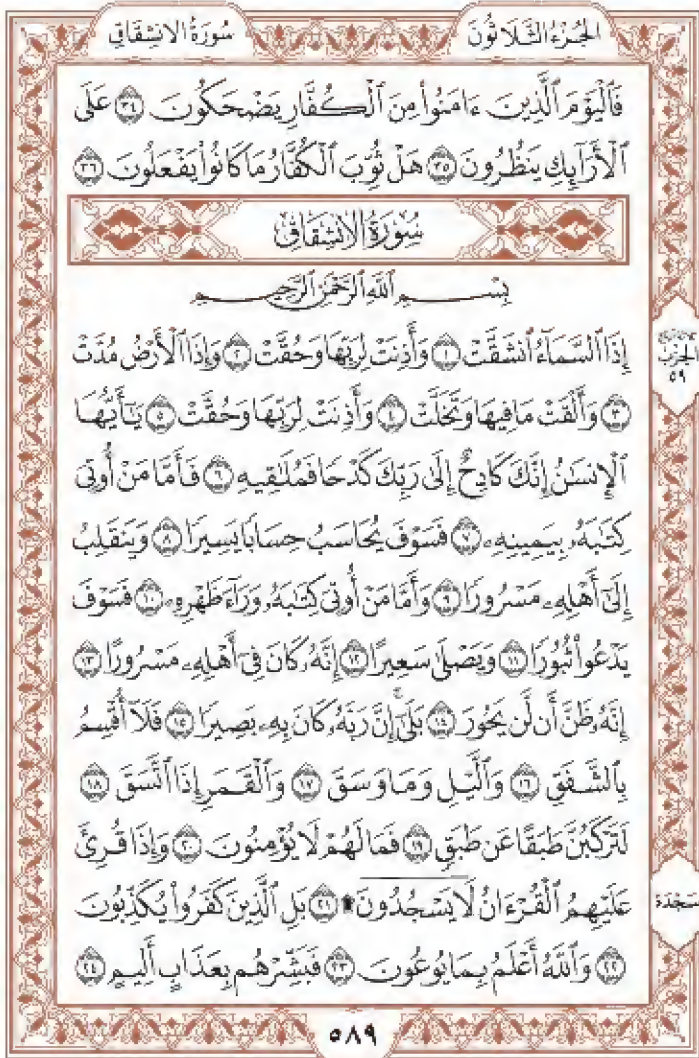 الجُزْءُ الثَّلَاثُونَ
سُورَةُ الانشِقَاقِ
فَٱلْيَوْمَ ٱلَّذِينَ ءَامَنُوا۟ مِنَ ٱلْكُفَّارِ يَضْحَكُونَ ٣٤ عَلَى
ٱلْأَرَآئِكِ يَنظُرُونَ ٣٥ هَلْ ثُوِّبَ ٱلْكُفَّارُ مَا كَانُوا۟ يَفْعَلُونَ ٣٦
سُورَةُ الانشِقَاقِ
بِسْمِ ٱللَّهِ ٱلرَّحْمَٰنِ ٱلرَّحِيمِ
إِذَا ٱلسَّمَآءُ ٱنشَقَّتْ ١ وَأَذِنَتْ لِرَبِّهَا وَحُقَّتْ ٢ وَإِذَا ٱلْأَرْضُ مُدَّتْ
٣ وَأَلْقَتْ مَا فِيهَا وَتَخَلَّتْ ٤ وَأَذِنَتْ لِرَبِّهَا وَحُقَّتْ ٥ يَٰٓأَيُّهَا
ٱلْإِنسَٰنُ إِنَّكَ كَادِحٌ إِلَىٰ رَبِّكَ كَدْحًا فَمُلَٰقِيهِ ٦ فَأَمَّا مَنْ أُوتِىَ
كِتَٰبَهُۥ بِيَمِينِهِۦ ٧ فَسَوْفَ يُحَاسَبُ حِسَابًا يَسِيرًا ٨ وَيَنقَلِبُ
إِلَىٰٓ أَهْلِهِۦ مَسْرُورًا ٩ وَأَمَّا مَنْ أُوتِىَ كِتَٰبَهُۥ وَرَآءَ ظَهْرِهِۦ ١٠ فَسَوْفَ
يَدْعُوا۟ ثُبُورًا ١١ وَيَصْلَىٰ سَعِيرًا ١٢ إِنَّهُۥ كَانَ فِىٓ أَهْلِهِۦ مَسْرُورًا ١٣
إِنَّهُۥ ظَنَّ أَن لَّن يَحُورَ ١٤ بَلَىٰٓ إِنَّ رَبَّهُۥ كَانَ بِهِۦ بَصِيرًا ١٥ فَلَآ أُقْسِمُ
بِٱلشَّفَقِ ١٦ وَٱلَّيْلِ وَمَا وَسَقَ ١٧ وَٱلْقَمَرِ إِذَا ٱتَّسَقَ ١٨
لَتَرْكَبُنَّ طَبَقًا عَن طَبَقٍ ١٩ فَمَا لَهُمْ لَا يُؤْمِنُونَ ٢٠ وَإِذَا قُرِئَ
عَلَيْهِمُ ٱلْقُرْءَانُ لَا يَسْجُدُونَ ۩ ٢١ بَلِ ٱلَّذِينَ كَفَرُوا۟ يُكَذِّبُونَ
٢٢ وَٱللَّهُ أَعْلَمُ بِمَا يُوعُونَ ٢٣ فَبَشِّرْهُم بِعَذَابٍ أَلِيمٍ ٢٤
الحِزْب
٥٩
سَجْدَة
٥٨٩